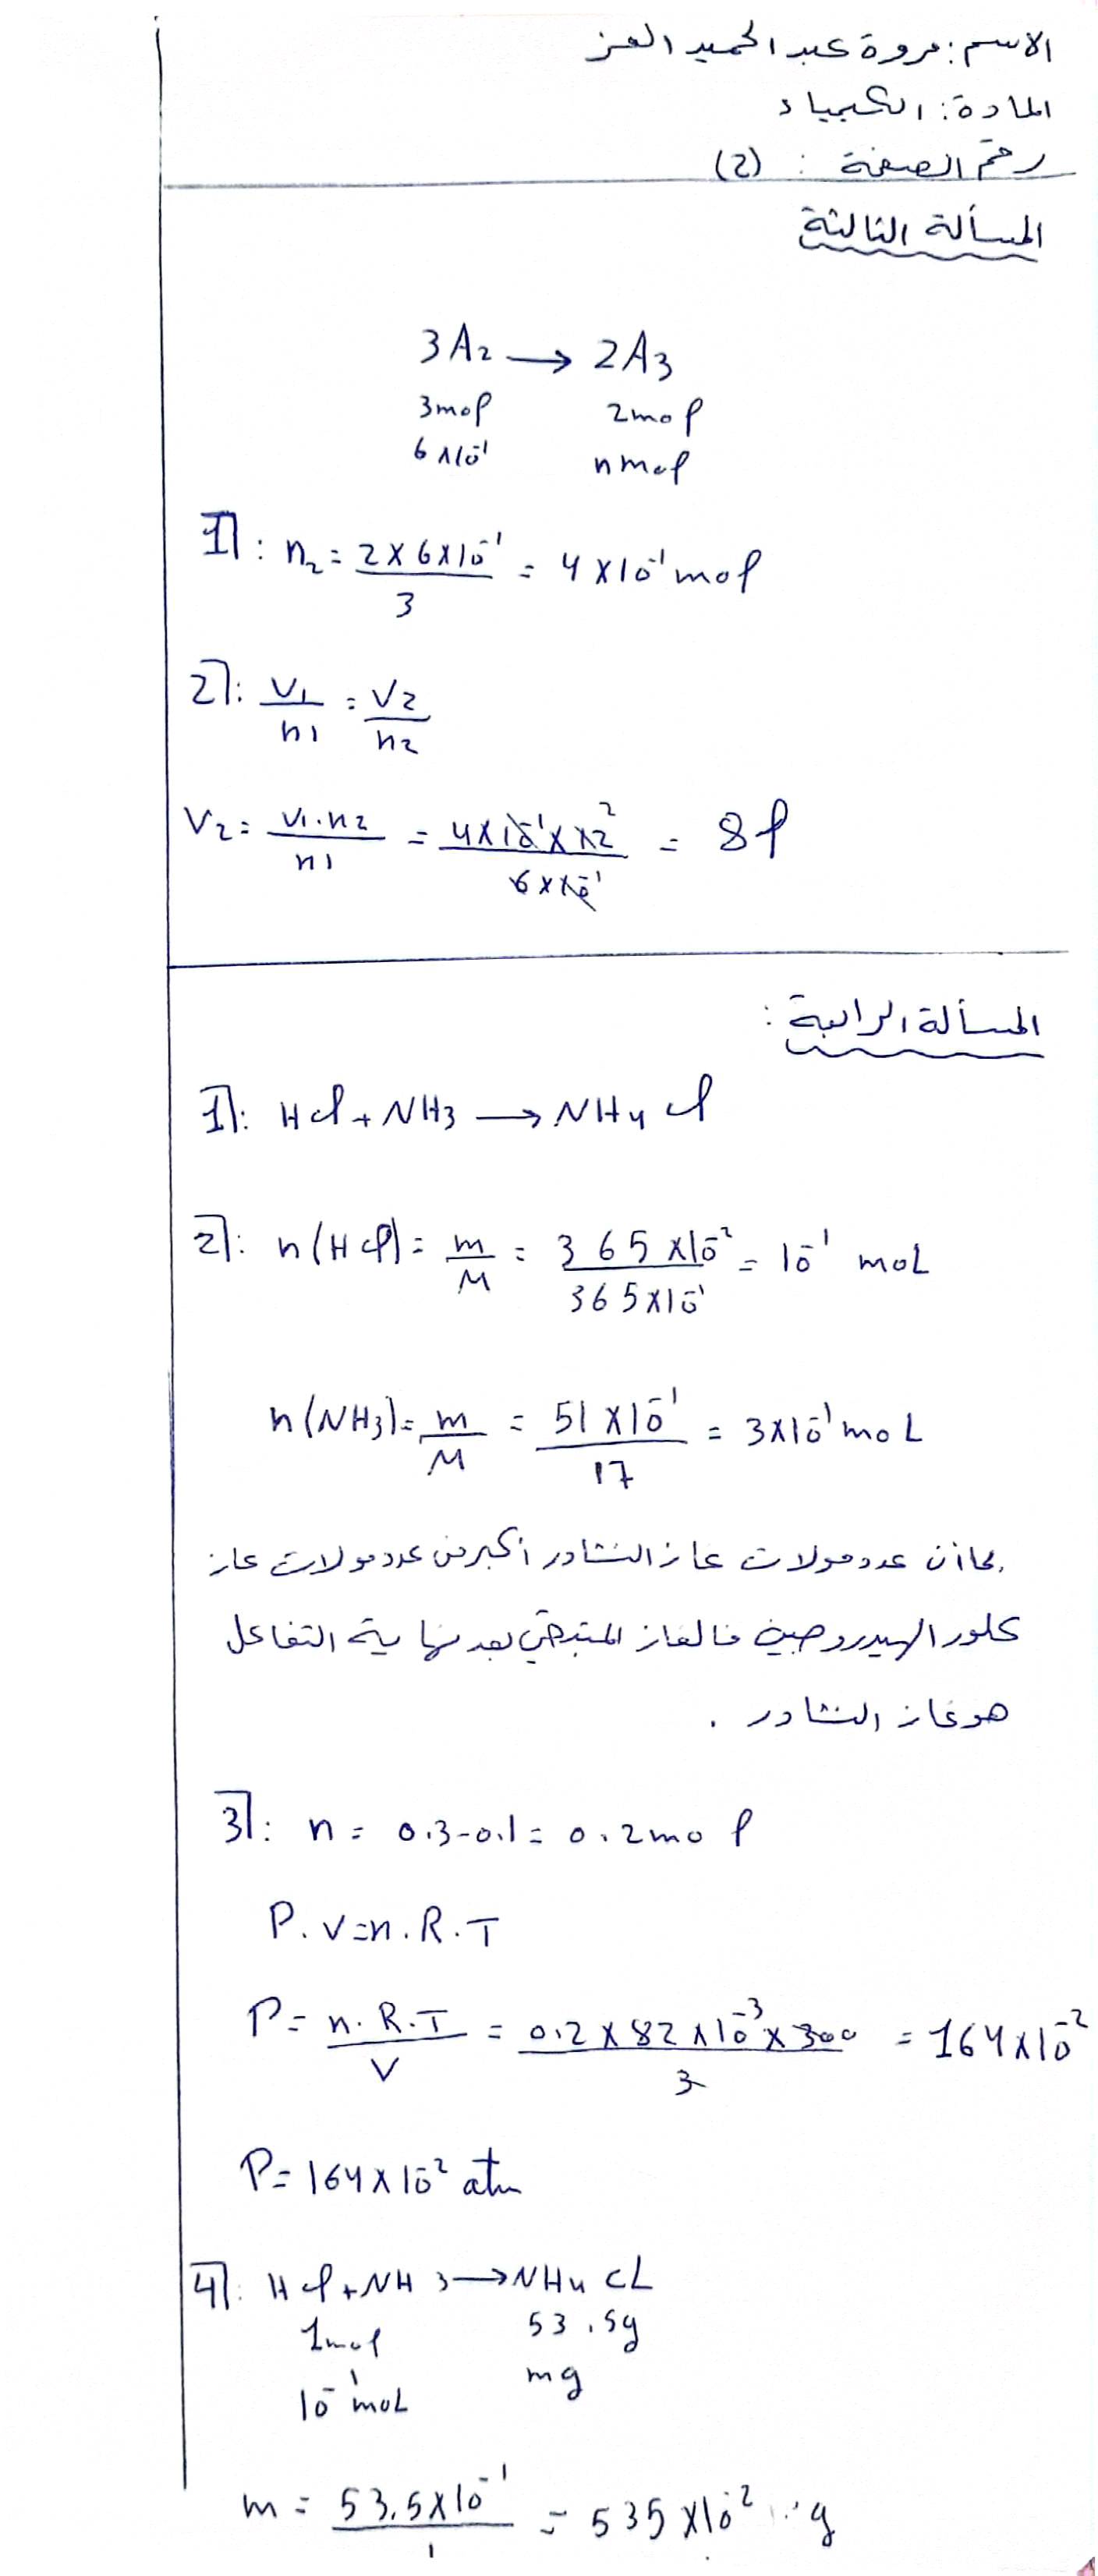 الاسم: مروة عبد الحميد العز
المادة: الكيمياء
رقم الصفحة : (2)
المسألة الثالثة
3A₂ → 2A₃
3mol 2mol
6×10⁻¹ n mol
1]: n₂ = 2×6×10⁻¹ / 3 = 4×10⁻¹ mol
2]: V₁/n₁ = V₂/n₂
V₂ = V₁.n₂ / n₁ = 4×10⁻¹×12 / 6×10⁻¹ = 8l
المسألة الرابعة :
1]: HCl + NH₃ → NH₄Cl
2]: n(HCl) = m/M = 365×10⁻² / 365×10⁻¹ = 10⁻¹ moL
n(NH₃) = m/M = 51×10⁻¹ / 17 = 3×10⁻¹ moL
بما أن عدد مولات غاز النشادر أكبر من عدد مولات غاز
كلور الهيدروجين فالغاز المتبقي بعد نهاية التفاعل
هو غاز النشادر .
3]: n = 0.3-0.1 = 0.2 mol
P.V=n.R.T
P = n.R.T / V = 0.2×82×10⁻³×300 / 3 = 164×10⁻²
P = 164×10⁻² atm
4]: HCl + NH3 → NH₄CL
1mol 53.5g
10⁻¹ moL mg
m = 53.5×10⁻¹ / 1 = 535×10⁻² g